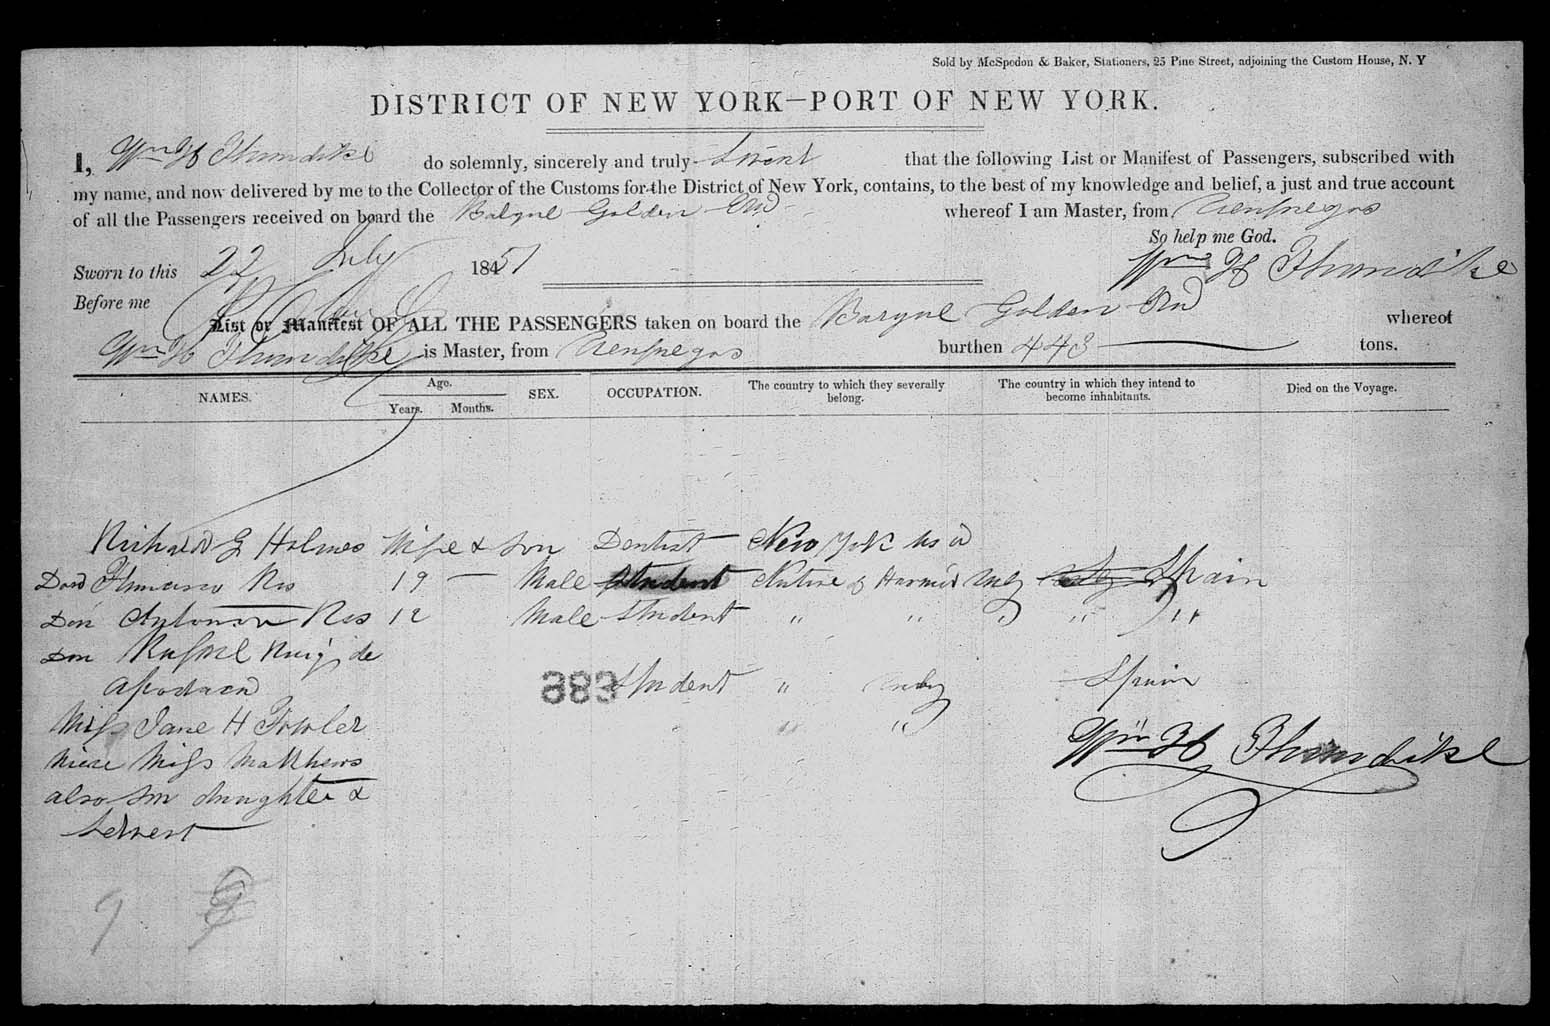 Sold by McSpedon & Baker, Stationers, 25 Pine Street, adjoining the Custom House, N. Y
DISTRICT OF NEW YORK—PORT OF NEW YORK.
I, Wm H Thorndike do solemnly, sincerely and truly Swear that the following List or Manifest of Passengers, subscribed with
my name, and now delivered by me to the Collector of the Customs for the District of New York, contains, to the best of my knowledge and belief, a just and true account
of all the Passengers received on board the Barque Golden whereof I am Master, from Cienfuegos
So help me God.
Sworn to this 22 July 1851 Wm H Thorndike
Before me
List or Manifest OF ALL THE PASSENGERS taken on board the Barque Golden whereof
Wm H Thorndike is Master, from Cienfuegos burthen 443 tons.
NAMES. Age. Years. Months. SEX. OCCUPATION. The country to which they severally belong. The country in which they intend to become inhabitants. Died on the Voyage.
Richard G Holmes Wife & Son Dentist New York
Don Francisco Res 19 — Male Student Native of Spain
Don Antonio Res 12 Male Student " " " " "
Don Rafael Ruiz de
Apodaca Student " Spain
383
Miss Jane H Fowler "
Wm H Thorndike
Niece Miss Matthews
also daughter &
Servent
9